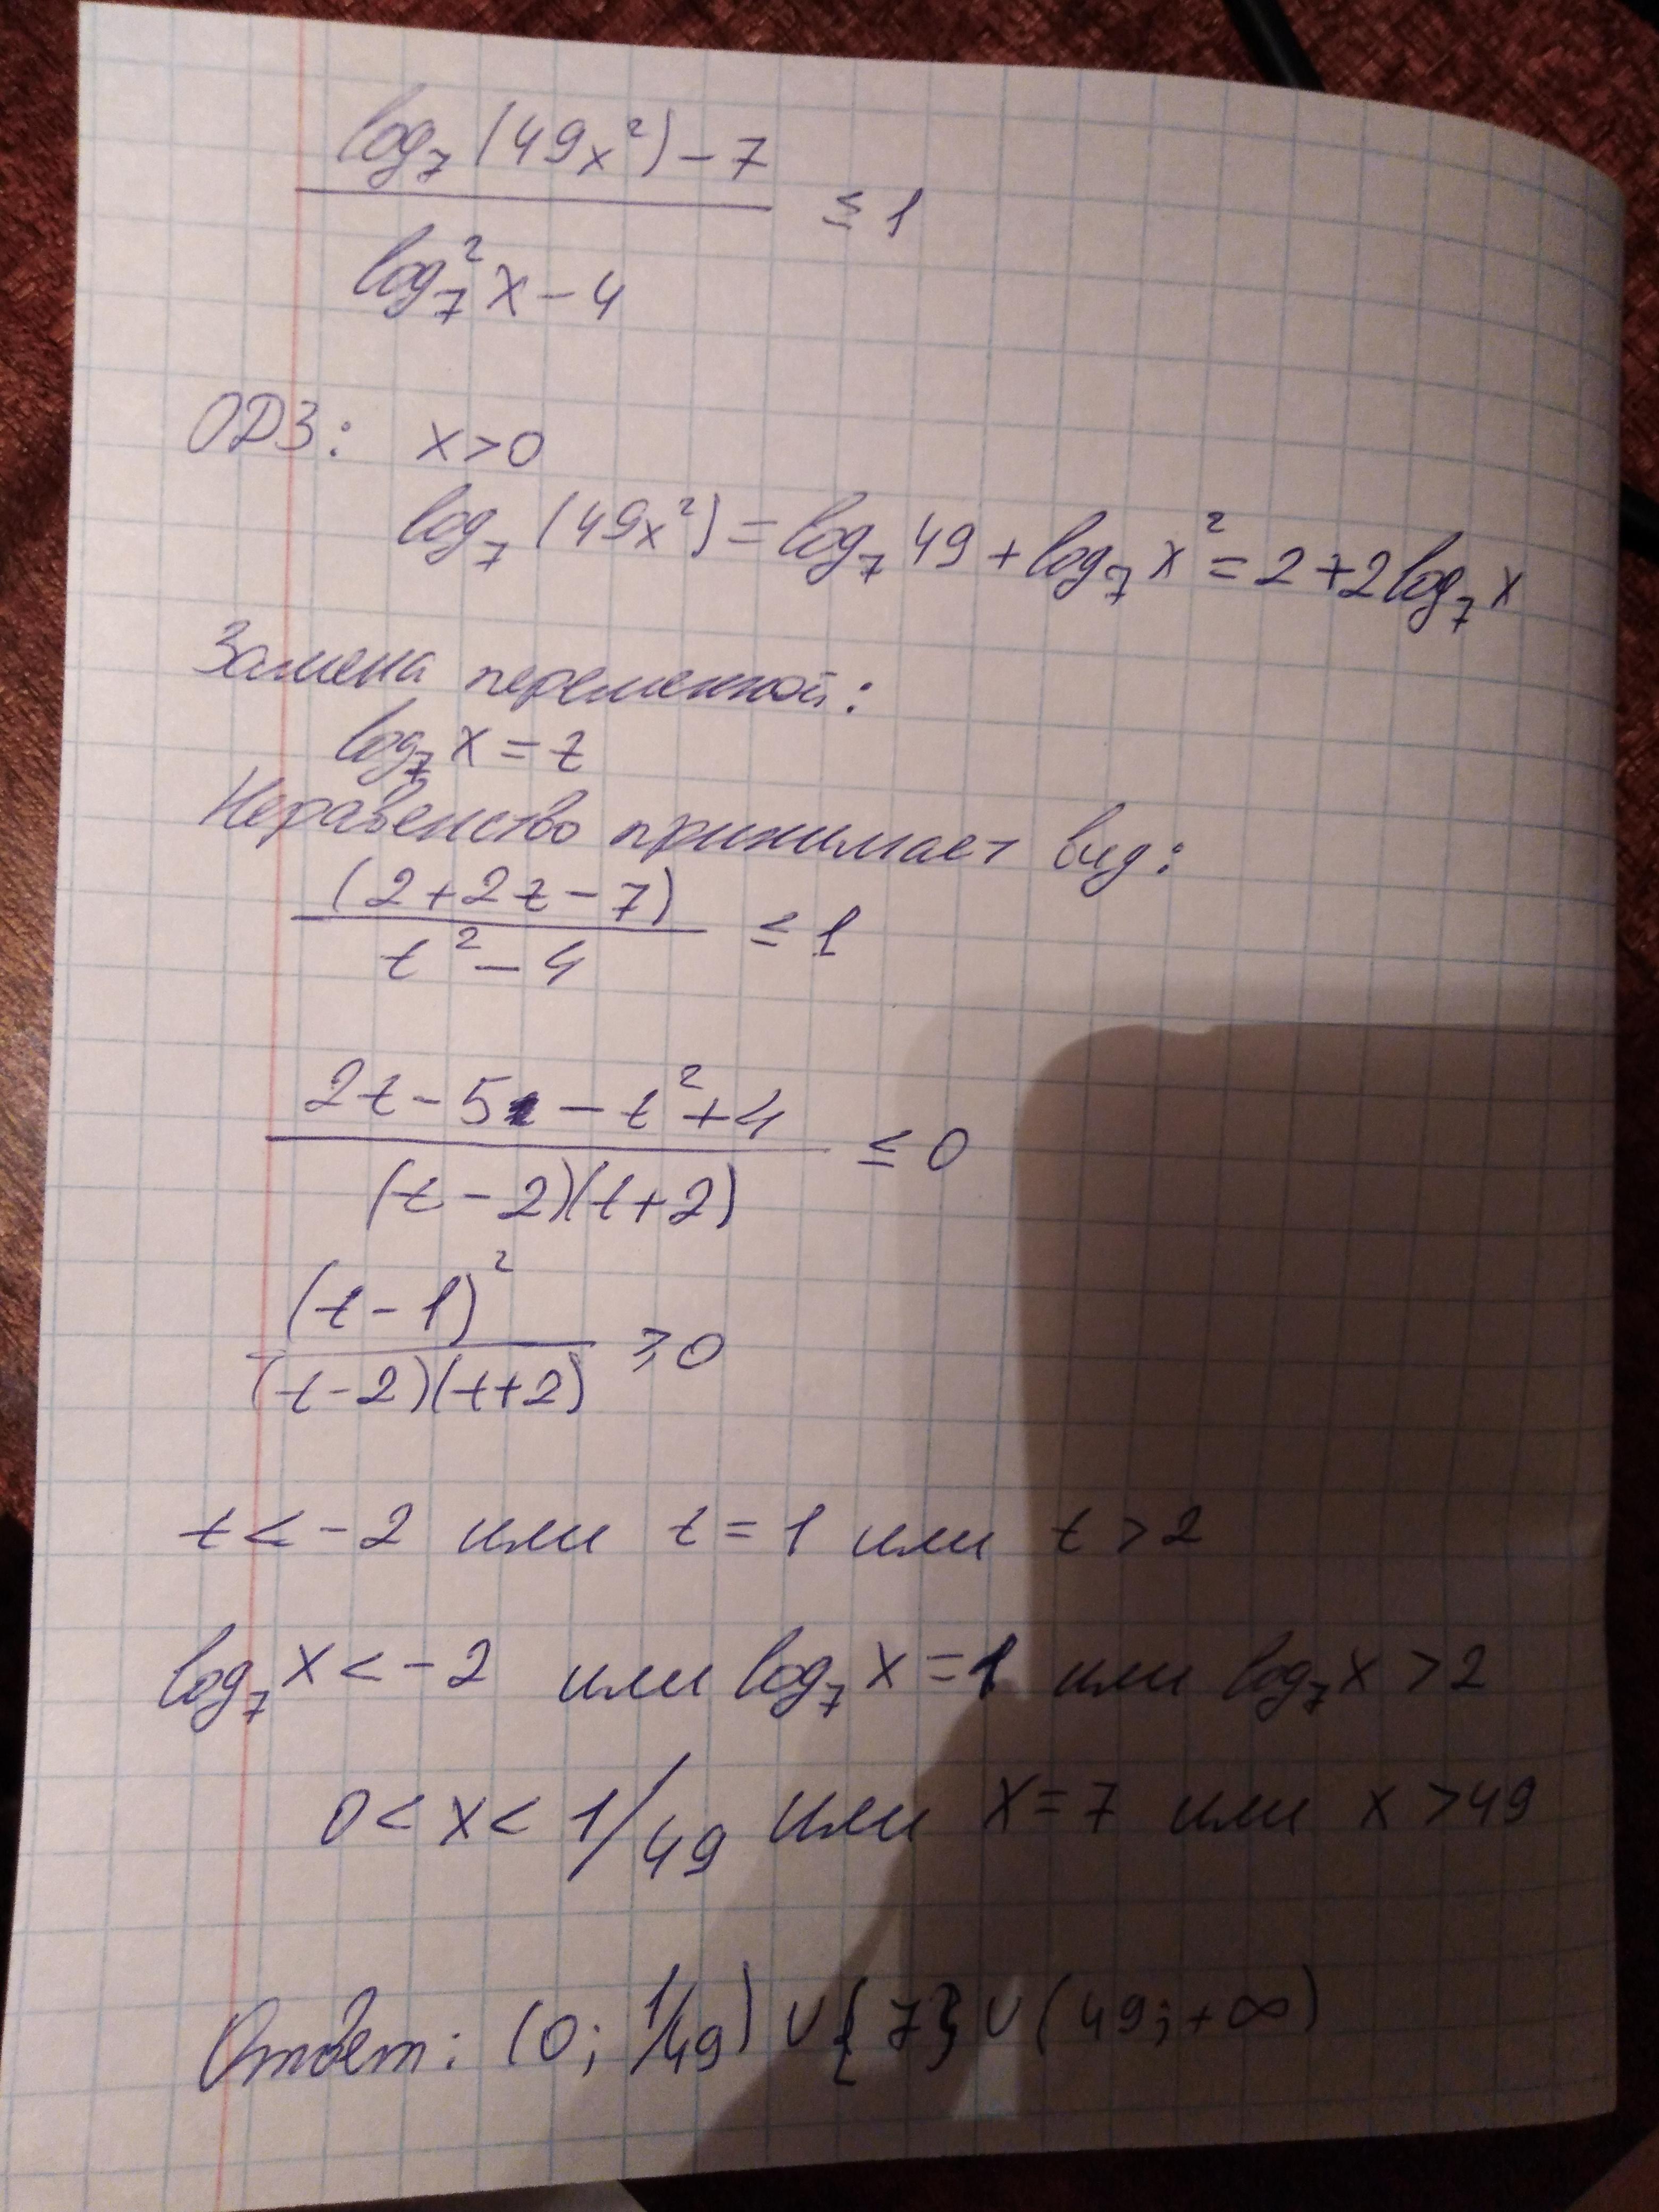 log₇(49x²) − 7
≤ 1
log₇²x − 4
ОДЗ: x > 0
log₇(49x²) = log₇49 + log₇x² = 2 + 2log₇x
Замена переменной:
log₇x = t
Неравенство принимает вид:
(2 + 2t − 7)
≤ 1
t² − 4
2t − 5 − t² + 4
≤ 0
(t − 2)(t + 2)
(t − 1)²
≥ 0
(t − 2)(t + 2)
t < −2 или t = 1 или t > 2
log₇x < −2 или log₇x = 1 или log₇x > 2
0 < x < 1/49 или x = 7 или x > 49
Ответ: (0; 1/49) ∪ {7} ∪ (49; +∞)